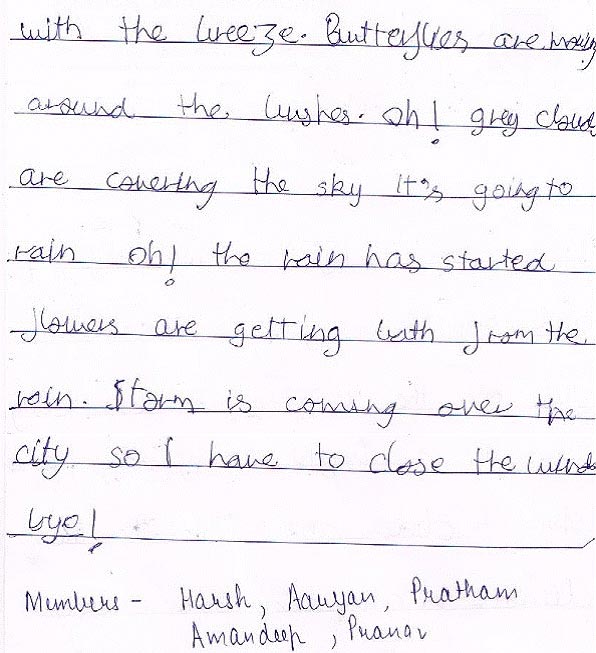 with the breeze. Butterflies are moving
around the bushes. Oh! grey clouds
are covering the sky It's going to
rain Oh! the rain has started
flowers are getting bath from the
rain. Storm is coming over the
city so I have to close the window
bye!
Members - Harsh, Aaryan, Pratham
Amandeep, Pranav